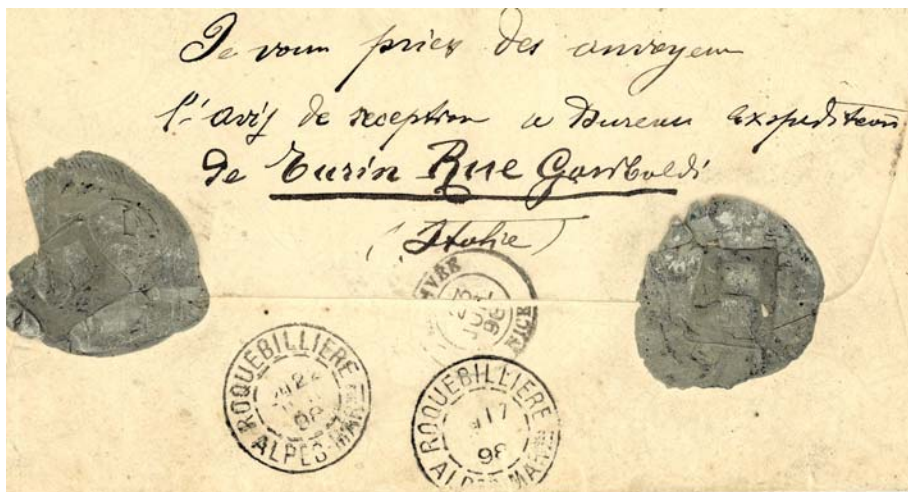 Je vous prier des anvoyeur
l'avis de reception a Bureau Expediteur
de Turin Rue Garibaldi
(Italie)
NICE
ROQUEBILLIERE
ALPES-MARI
ROQUEBILLIERE
17
98
ALPES-MARI